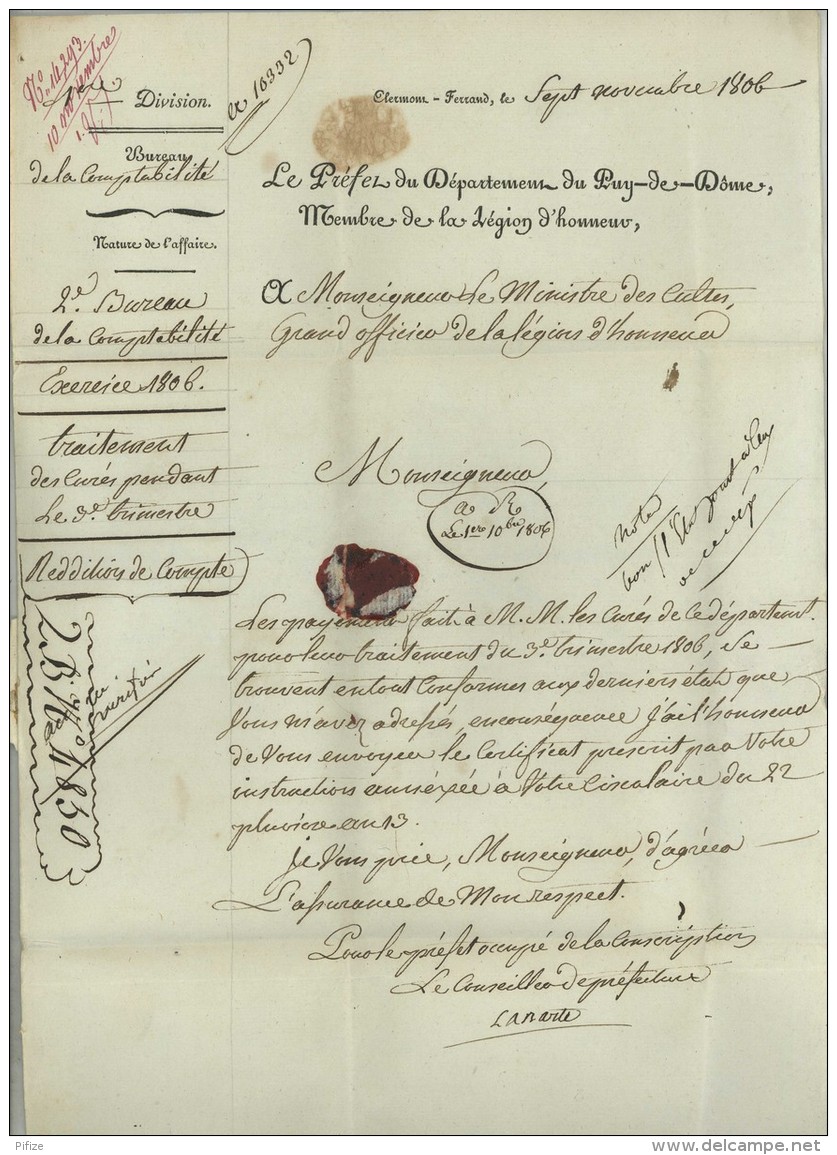 N.º 14293.
10 novembre
1ere Division.
a 10332
Bureau
de la Comptabilité
Nature de l'affaire.
2.e Bureau
de la Comptabilité
Exercice 1806.
traitement
des Curés pendant
Le 3.e trimestre
Reddition de Compte
2 B N.º 4830
vérifié
Clermont-Ferrand, le Sept novembre 1806
Le Préfet du Département du Puy-de-Dôme,
Membre de la Légion d'honneur,
A Monseigneur Le Ministre des Cultes,
Grand officier de la légion d'honneur
Monseigneur,
a R
Le 1ere 10bre 1806
noter
bon
Les payemens faits à M.M. les Curés de ce départemt.
pour leur traitement du 3.e trimestre 1806, se
trouvent en tout Conformes aux derniers état que
Vous m'avez adressés, en conséquence J'ai l'honneur
de Vous envoyer le Certificat prescrit par Votre
instruction annéxée à Votre Circulaire du 22
pluviose an 13.
Je Vous prie, Monseigneur, d'agréer
L'assurance de Mon respect.
Pour le préfet occupé de la Conscription
Le Conseiller de préfecture
Pifize
delcampe.net